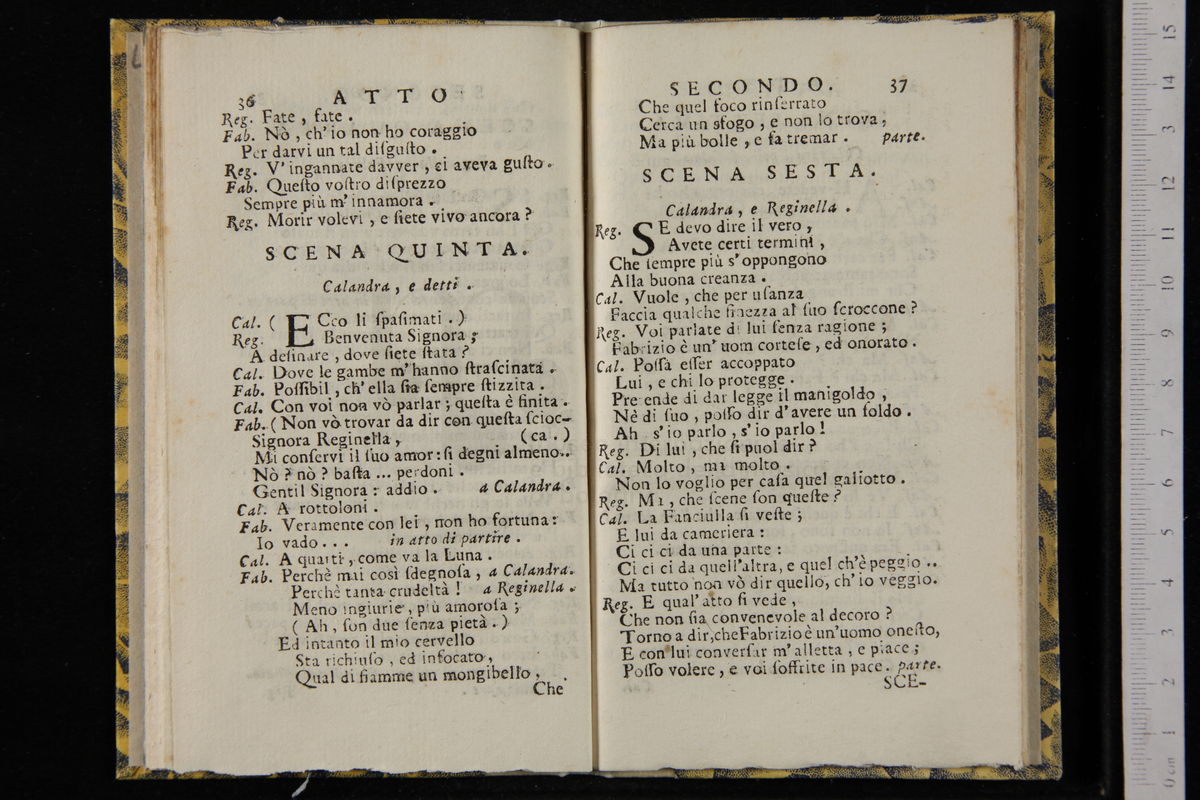 36 ATTO
Reg. Fate , fate .
Fab. Nò , ch' io non ho coraggio
Per darvi un tal diſguſto .
Reg. V' ingannate davver , ci aveva guſto .
Fab. Queſto voſtro diſprezzo
Sempre più m' innamora .
Reg. Morir volevi , e ſiete vivo ancora ?
SCENA QUINTA.
Calandra , e detti .
Cal. ( ECco li ſpaſimati . )
Reg. Benvenuta Signora ;
A deſinare , dove ſiete ſtata ?
Cal. Dove le gambe m' hanno ſtraſcinata .
Fab. Poſſibil , ch' ella ſia ſempre ſtizzita .
Cal. Con voi non vò parlar ; queſta è finita .
Fab. ( Non vò trovar da dir con queſta ſcioc-
Signora Reginella , (ca . )
Mi conſervi il ſuo amor : ſi degni almeno..
Nò ? nò ? baſta ... perdoni .
Gentil Signora : addio . a Calandra .
Cal. A rottoloni .
Fab. Veramente con lei , non ho fortuna :
Io vado . . . in atto di partire .
Cal. A quarti , come va la Luna .
Fab. Perchè mai così ſdegnoſa , a Calandra.
Perchè tanta crudeltà ! a Reginella .
Meno ingiurie , più amoroſa ;
( Ah , ſon due ſenza pietà . )
Ed intanto il mio cervello
Sta richiuſo , ed infocato ,
Qual di fiamme un mongibello ,
Che
SECONDO. 37
Che quel foco rinſerrato
Cerca un sfogo , e non lo trova ;
Ma più bolle , e fa tremar . parte.
SCENA SESTA.
Calandra , e Reginella .
Reg. SE devo dire il vero ,
Avete certi termini ,
Che ſempre più s' oppongono
Alla buona creanza .
Cal. Vuole , che per uſanza
Faccia qualche finezza al ſuo ſcroccone ?
Reg. Voi parlate di lui ſenza ragione ;
Fabrizio è un' uom corteſe , ed onorato .
Cal. Poſſa eſſer accoppato
Lui , e chi lo protegge .
Pre ende di dar legge il manigoldo ,
Nè di ſuo , poſſo dir d' avere un ſoldo .
Ah s' io parlo , s' io parlo !
Reg. Di lui , che ſi puol dir ?
Cal. Molto , ma molto .
Non lo voglio per caſa quel galiotto .
Reg. Ma , che ſcene ſon queſte ?
Cal. La Fanciulla ſi veſte ;
E lui da cameriera :
Ci ci ci da una parte :
Ci ci ci da quell'altra, e quel ch'è peggio ..
Ma tutto non vò dir quello, ch' io veggio.
Reg. E qual' atto ſi vede ,
Che non ſia convenevole al decoro ?
Torno a dir,cheFabrizio è un'uomo oneſto,
E con lui converſar m' alletta , e piace ;
Poſſo volere , e voi ſoffrite in pace . parte.
SCE-